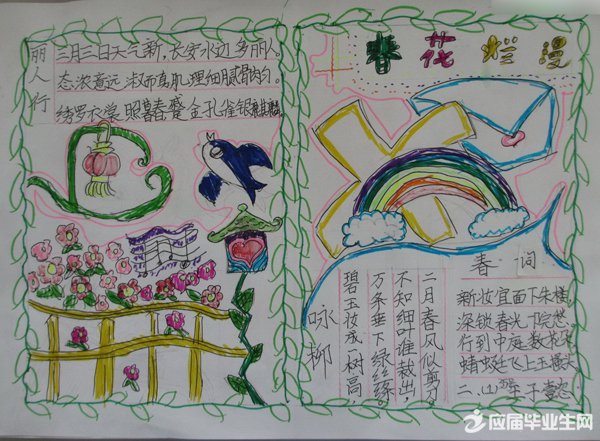 丽人行
三月三日天气新,长安水边多丽人。
态浓意远淑而真肌理细腻骨肉匀。
绣罗衣裳照暮春蹙金孔雀银麒麟
春花烂漫
咏柳
碧玉妆成一树高
万条垂下绿丝绦
不知细叶谁裁出
二月春风似剪刀。
春词
新妆宜面下朱楼
深锁春光一院愁
行到中庭数花朵
蜻蜓飞上玉搔头
应届毕业生网